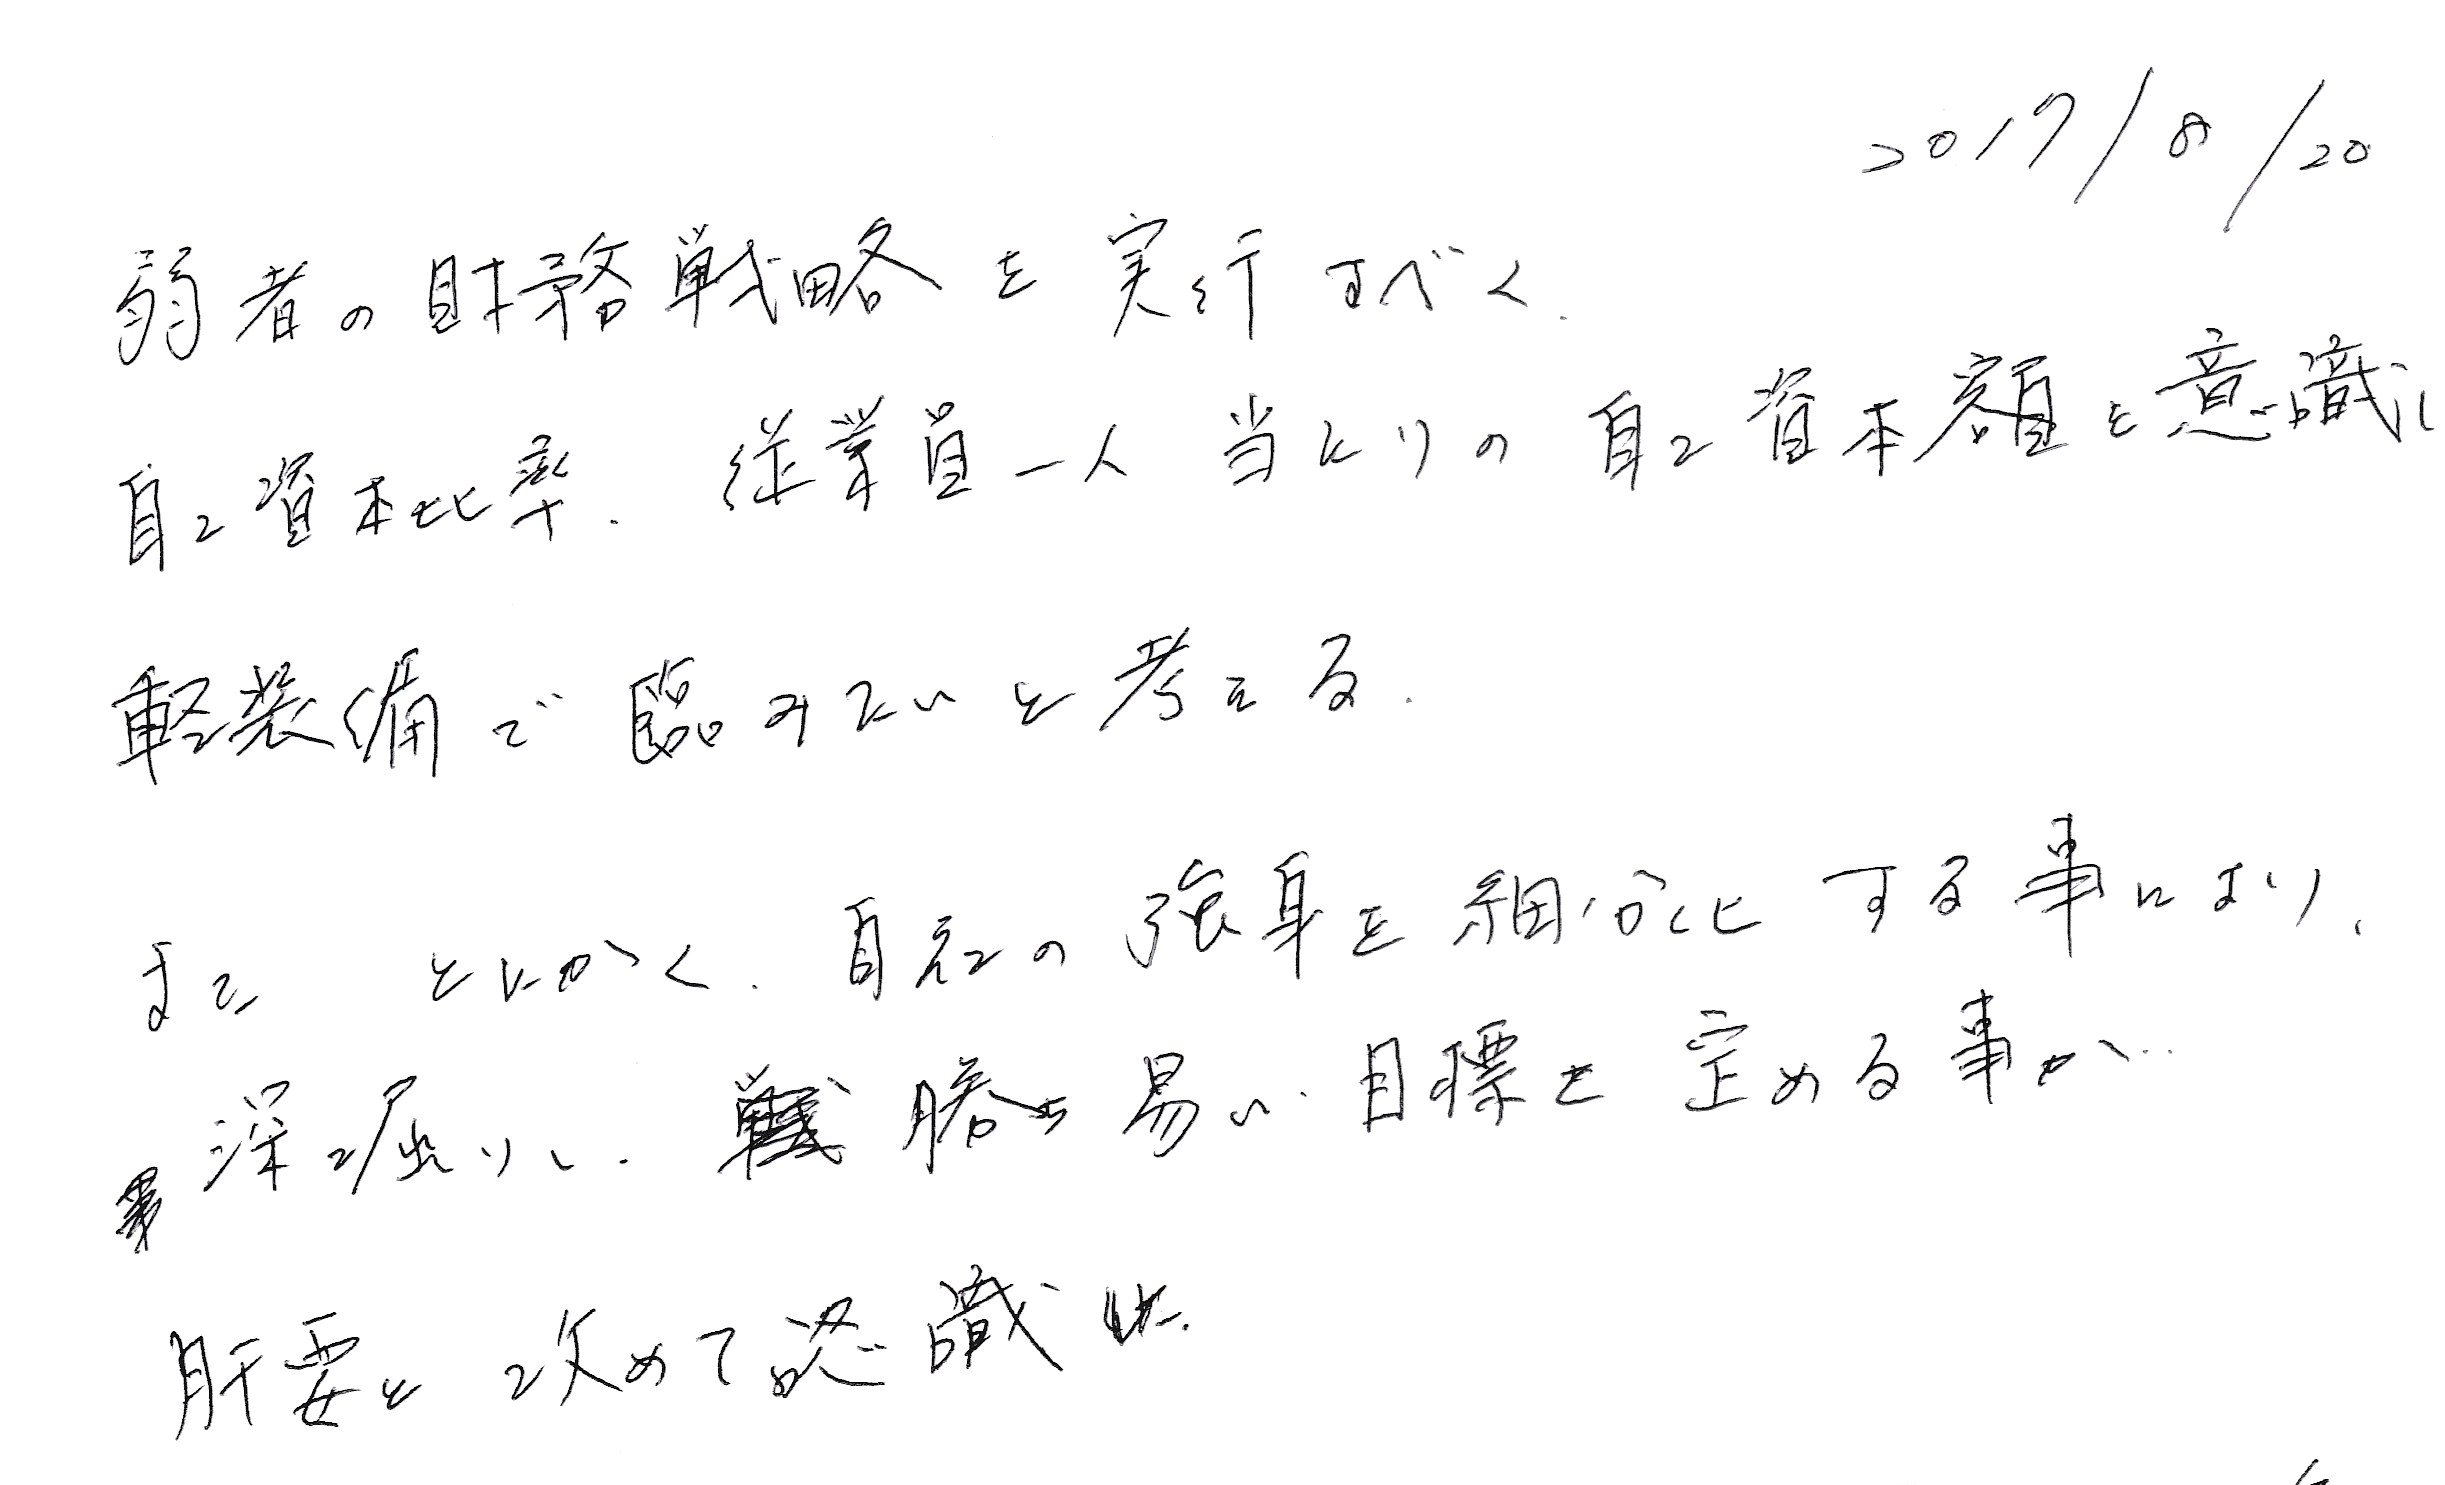 2017/8/20
弱者の財務戦略を実行すべく、
自己資本比率、従業員一人当たりの自己資本額を意識し
軽装備で臨みたいと考える。
また とにかく、自社の強身を細分化する事により、
深堀りし、勝ち易い目標を定める事が
肝要と改めて認識した。